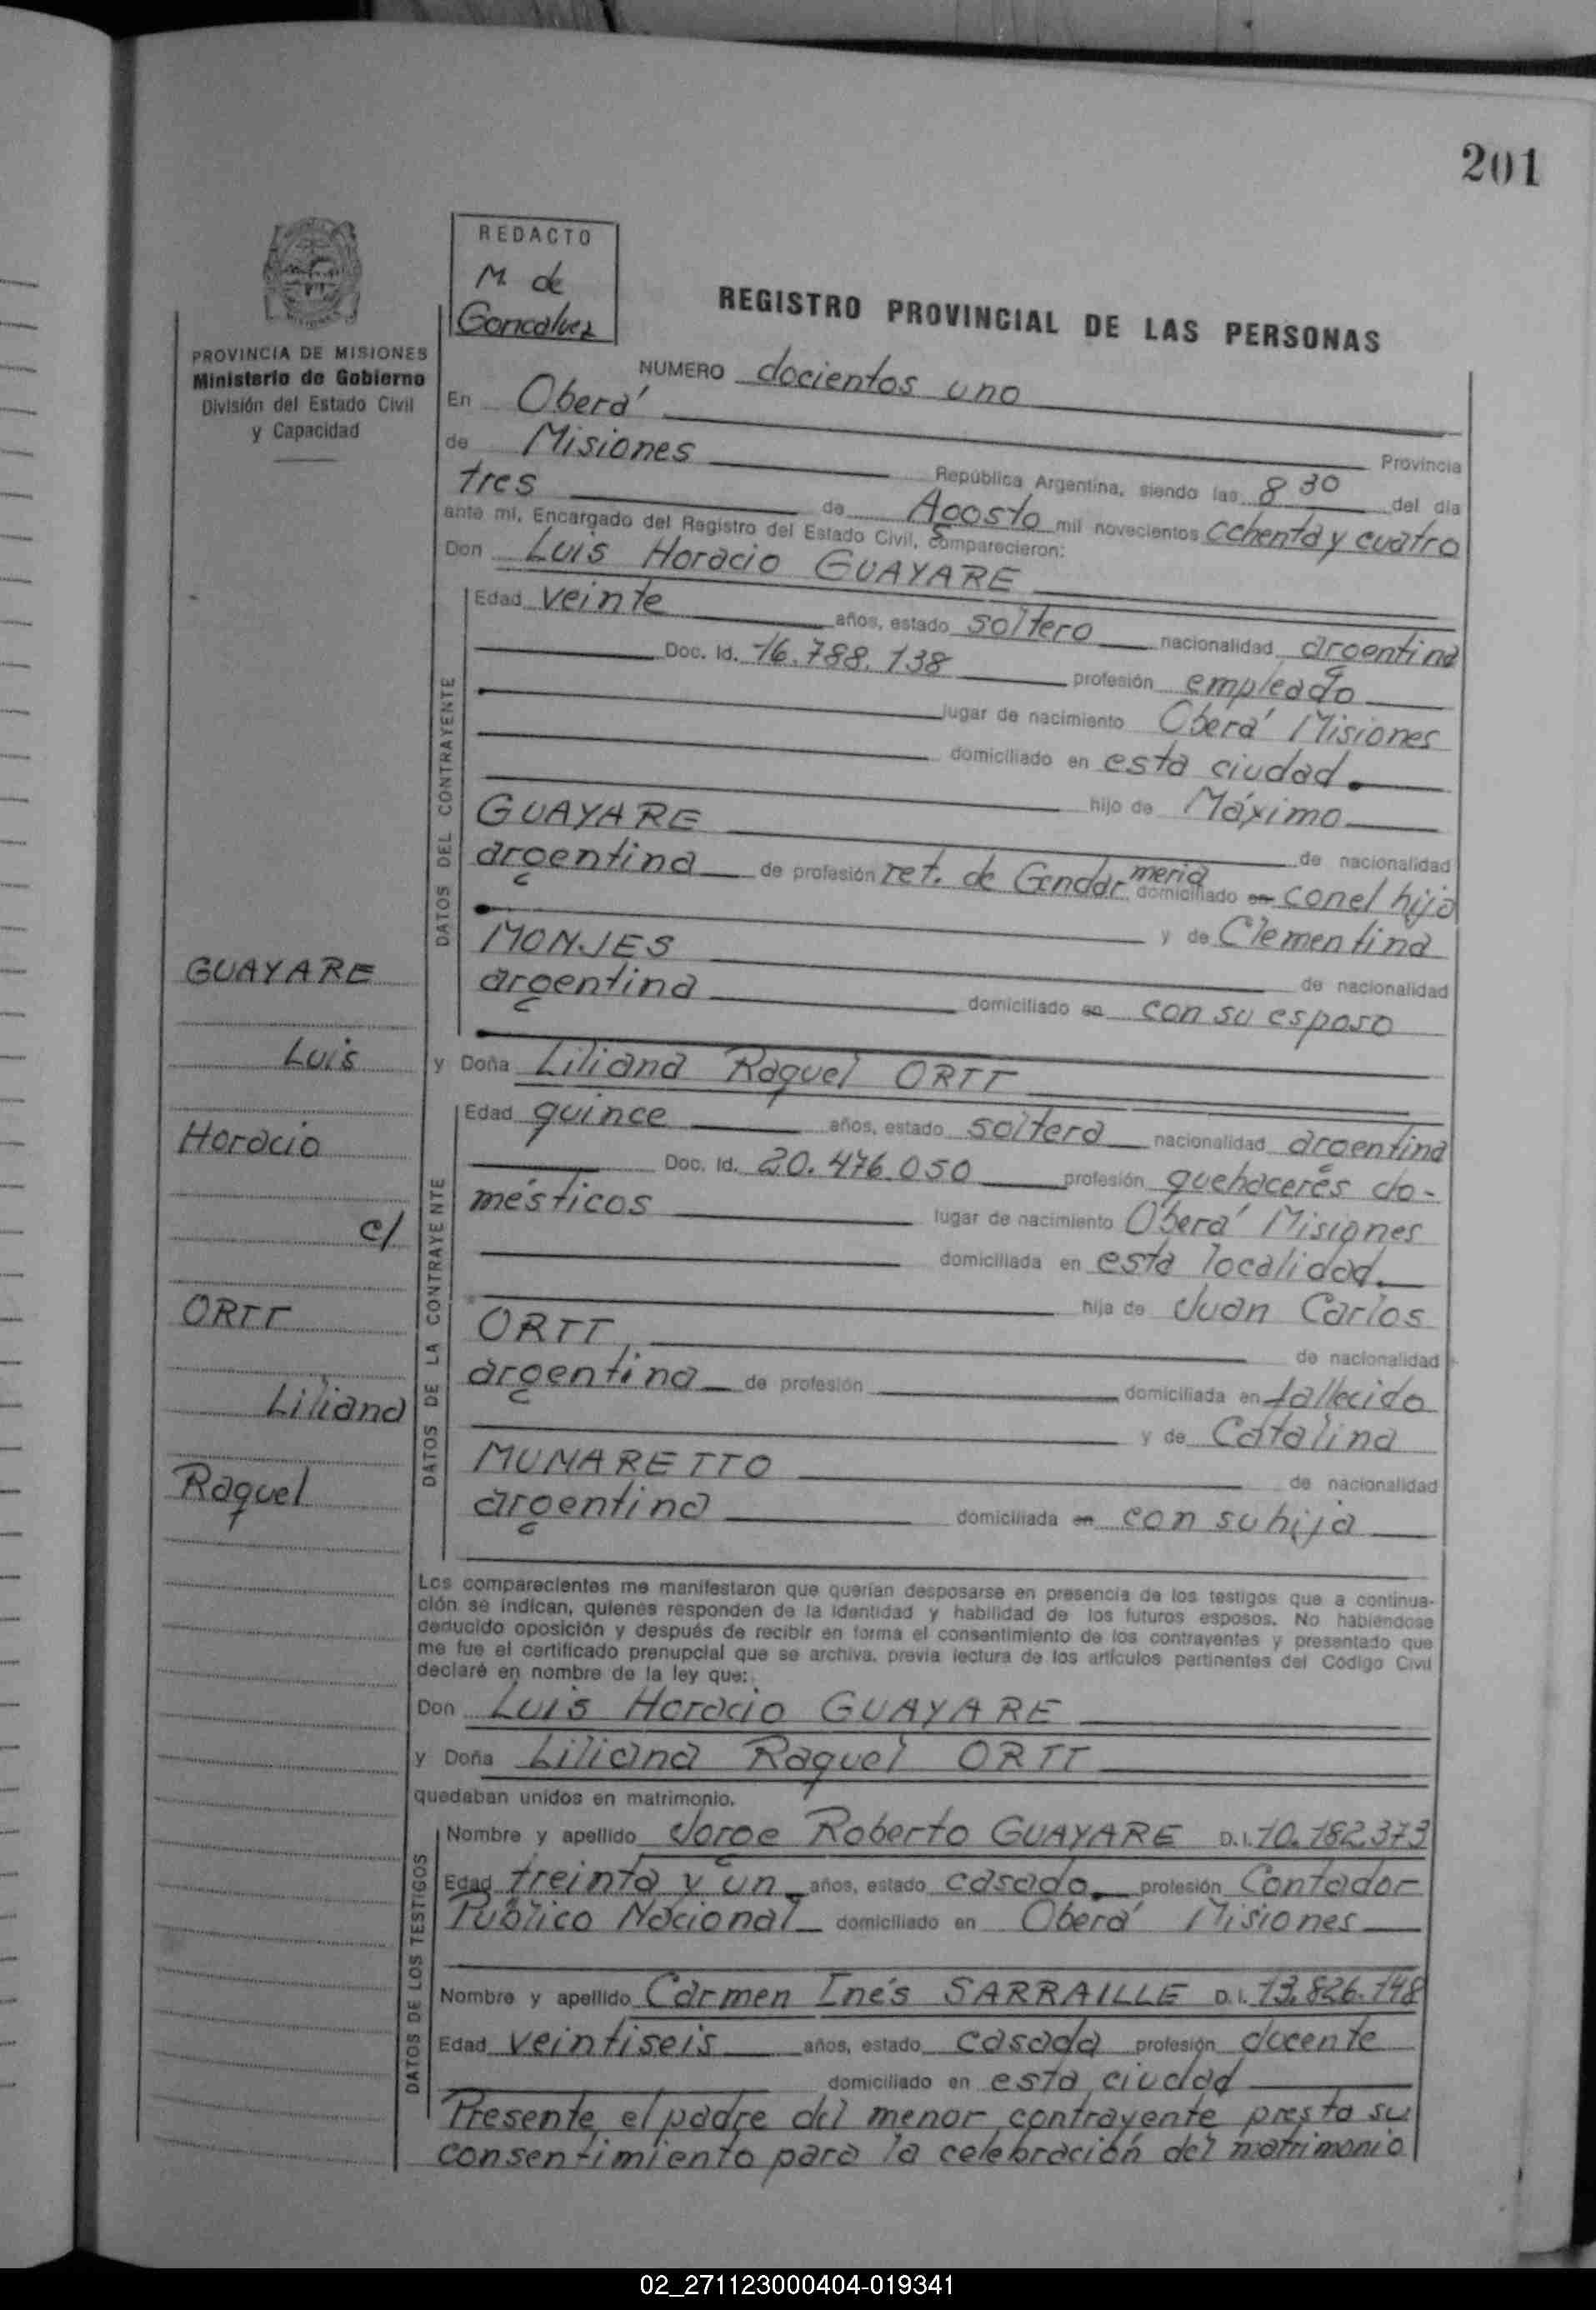 201
REDACTO
M. de
Goncalvez
REGISTRO PROVINCIAL DE LAS PERSONAS
PROVINCIA DE MISIONES
Ministerio de Gobierno
División del Estado Civil
y Capacidad
NUMERO docientos uno
En Oberá Provincia
de Misiones República Argentina, siendo las 8 30 del día
tres de Agosto mil novecientos ochenta y cuatro
ante mí, Encargado del Registro del Estado Civil, comparecieron:
Don Luis Horacio GUAYARE
DATOS DEL CONTRAYENTE
Edad veinte años, estado soltero nacionalidad argentina
Doc. Id. 16.788.138 profesión empleado
lugar de nacimiento Oberá Misiones
domiciliado en esta ciudad.
hijo de Máximo
GUAYARE de nacionalidad
argentina de profesión ret. de Gendarmeria domiciliado en con el hijo
y de Clementina
MONJES de nacionalidad
argentina domiciliado en con su esposo
y Doña Liliana Raquel ORTT
DATOS DE LA CONTRAYENTE
Edad quince años, estado soltera nacionalidad argentina
Doc. Id. 20.476.050 profesión quehaceres do-
mésticos lugar de nacimiento Oberá Misiones
domiciliada en esta localidad.
hija de Juan Carlos
ORTT de nacionalidad
argentina de profesión domiciliada en fallecido
y de Catalina
MUNARETTO de nacionalidad
argentina domiciliada en con su hija
GUAYARE
Luis
Horacio
c/
ORTT
Liliana
Raquel
Los comparecientes me manifestaron que querían desposarse en presencia de los testigos que a continua-
ción se indican, quienes responden de la identidad y habilidad de los futuros esposos. No habiéndose
deducido oposición y después de recibir en forma el consentimiento de los contrayentes y presentado que
me fue el certificado prenupcial que se archiva, previa lectura de los artículos pertinentes del Código Civil
declaré en nombre de la ley que:
Don Luis Horacio GUAYARE
y Doña Liliana Raquel ORTT
quedaban unidos en matrimonio.
DATOS DE LOS TESTIGOS
Nombre y apellido Jorge Roberto GUAYARE D.I. 10.182.373
Edad treinta y un años, estado casado. profesión Contador
Público Nacional domiciliado en Oberá Misiones
Nombre y apellido Carmen Inés SARRAILLE D.I. 13.826.148
Edad veintiseis años, estado casada profesión docente
domiciliado en esta ciudad
Presente el padre del menor contrayente presta su
consentimiento para la celebración del matrimonio
02_271123000404-019341